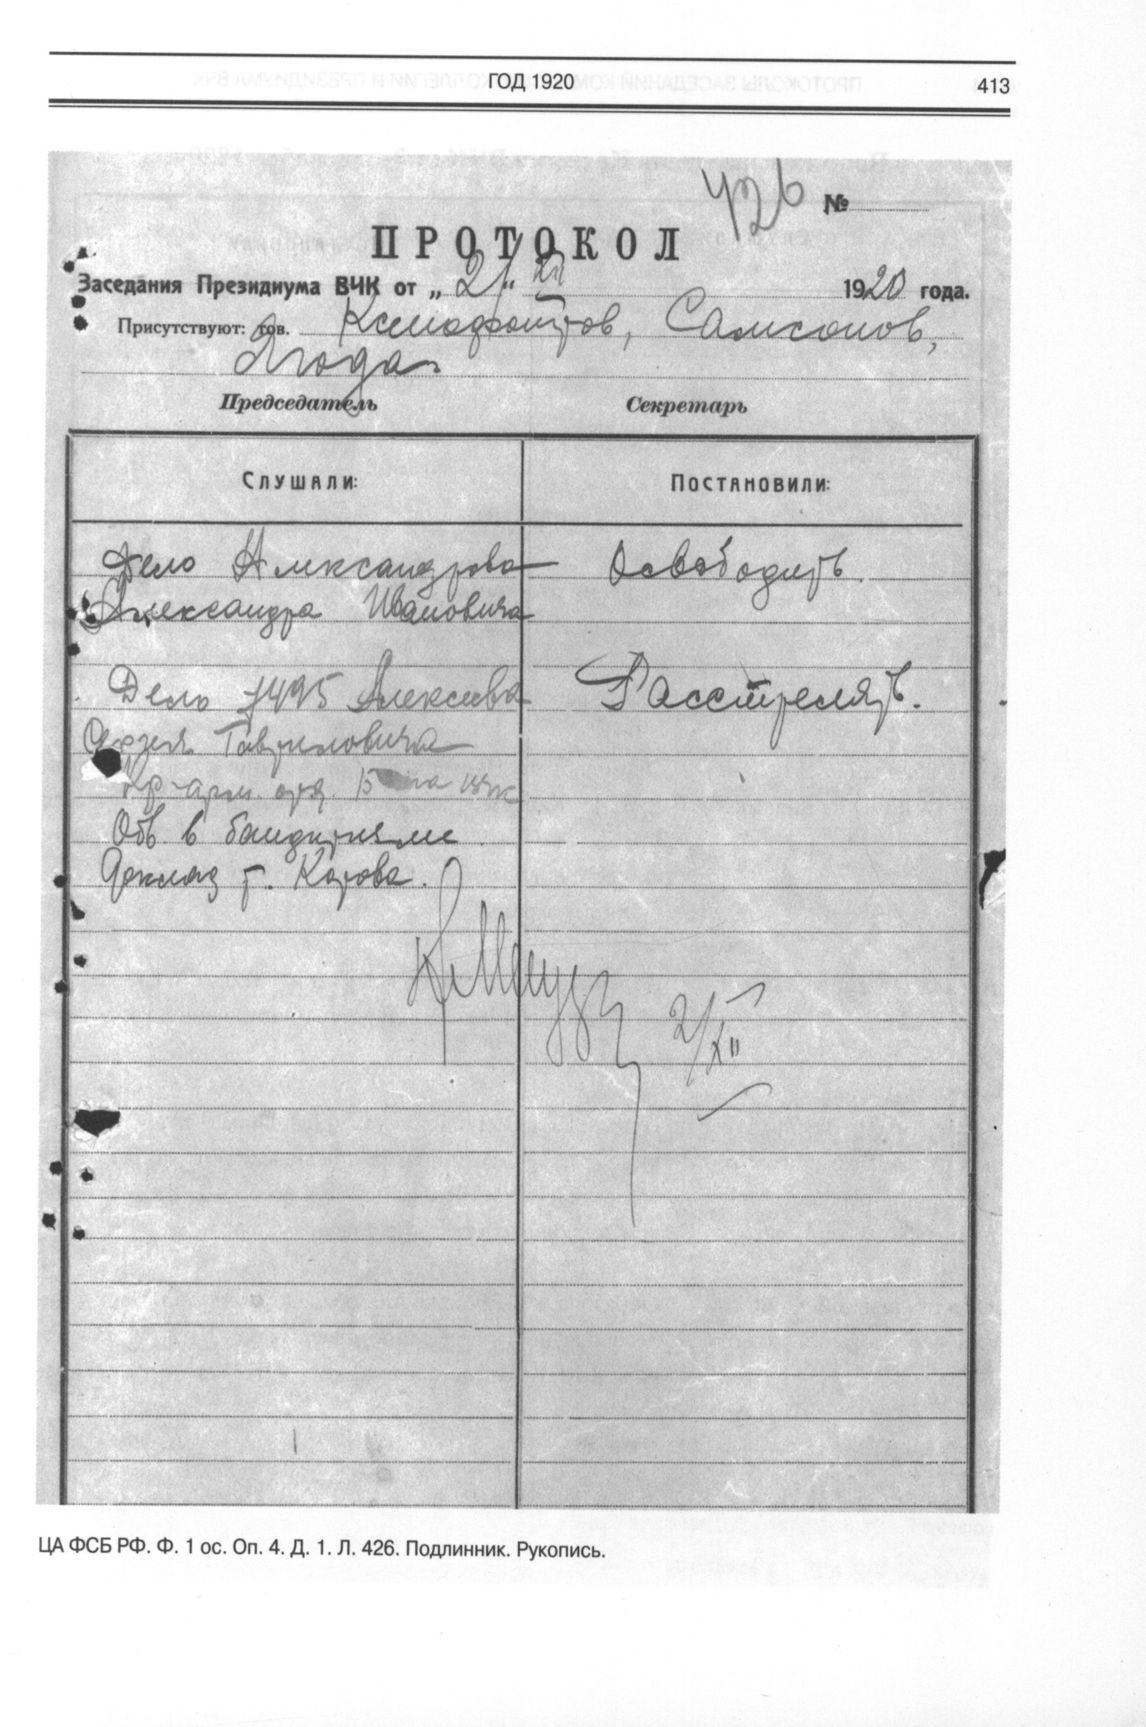 ГОД 1920
413
426 №
ПРОТОКОЛ
Заседания Президиума ВЧК от „2/“ XII 1920 года.
Присутствуют: тов. Ксенофонтов, Самсонов,
Ягода
Председатель Секретарь
СЛУШАЛИ: ПОСТАНОВИЛИ:
Дело Александрова Освободить.
Александра Ивановича
Дело 7495 Алексеева Расстрелять.
Сергея Гавриловича
Кр-арм. 15
Обв. в бандитизме
Доклад т. Катова.
2/XII
ЦА ФСБ РФ. Ф. 1 ос. Оп. 4. Д. 1. Л. 426. Подлинник. Рукопись.